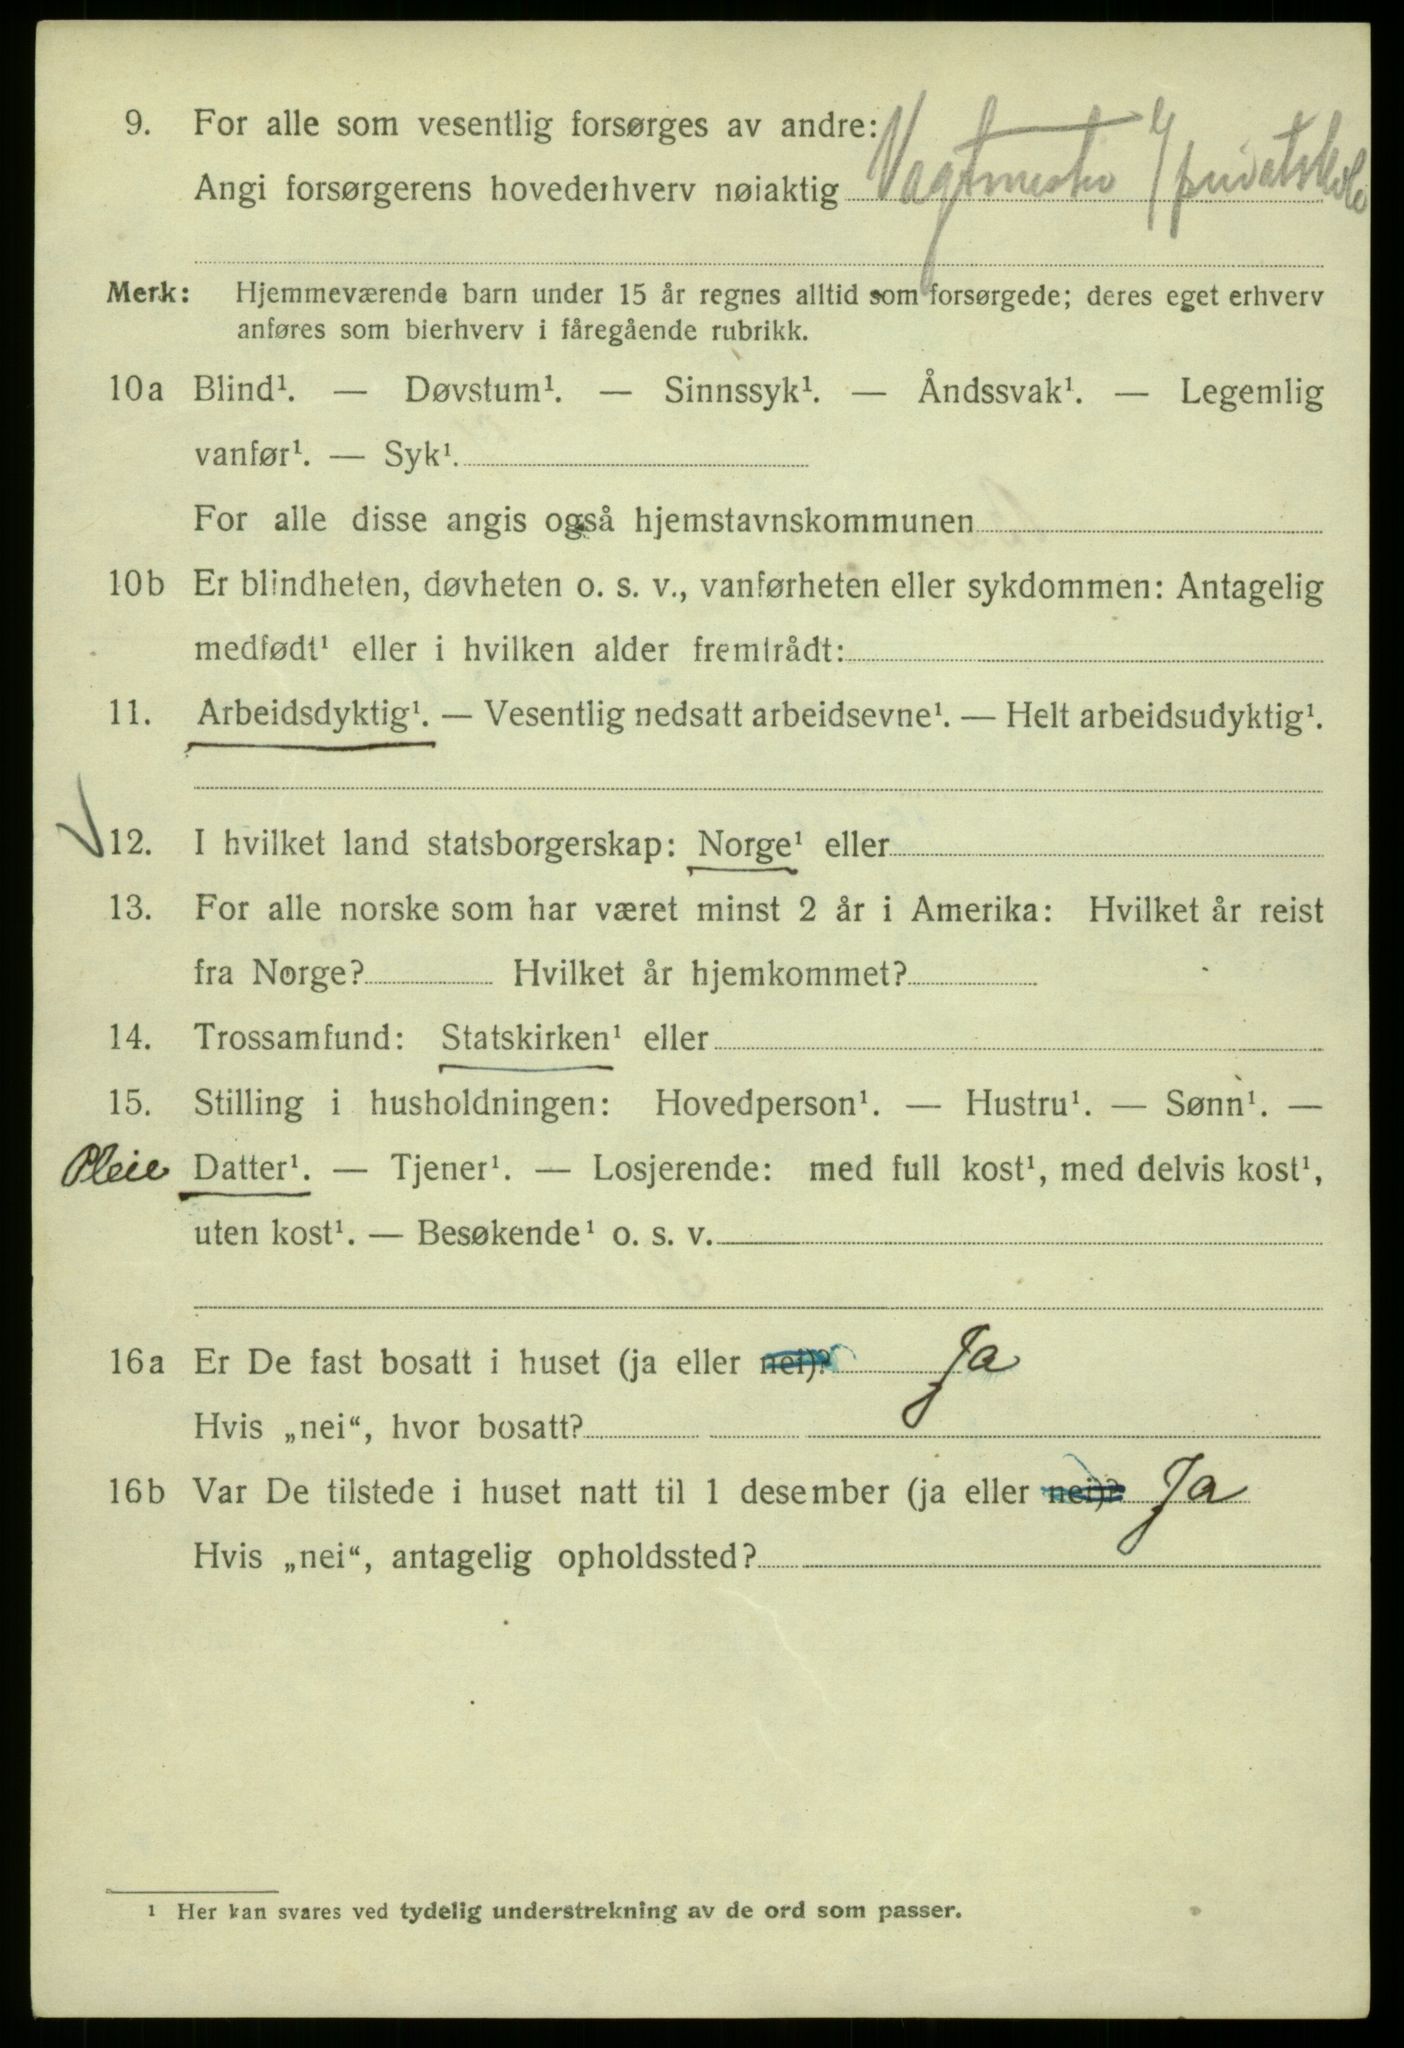 9. For alle som vesentlig forsørges av andre:
Angi forsørgerens hovederhverv nøiaktig Vagtmester v/ privatskole
Merk: Hjemmeværende barn under 15 år regnes alltid som forsørgede; deres eget erhverv
anføres som bierhverv i fåregående rubrikk.
10a Blind¹. — Døvstum¹. — Sinnssyk¹. — Åndssvak¹. — Legemlig
vanfør¹. — Syk¹.
For alle disse angis også hjemstavnskommunen
10b Er blindheten, døvheten o. s. v., vanførheten eller sykdommen: Antagelig
medfødt¹ eller i hvilken alder fremtrådt:
11. Arbeidsdyktig¹. — Vesentlig nedsatt arbeidsevne¹. — Helt arbeidsudyktig¹.
12. I hvilket land statsborgerskap: Norge¹ eller
13. For alle norske som har været minst 2 år i Amerika: Hvilket år reist
fra Norge? Hvilket år hjemkommet?
14. Trossamfund: Statskirken¹ eller
15. Stilling i husholdningen: Hovedperson¹. — Hustru¹. — Sønn¹. —
Pleie Datter¹. — Tjener¹. — Losjerende: med full kost¹, med delvis kost¹,
uten kost¹. — Besøkende¹ o. s. v.
16a Er De fast bosatt i huset (ja eller nei)? Ja
Hvis „nei“, hvor bosatt?
16b Var De tilstede i huset natt til 1 desember (ja eller nei)? Ja
Hvis „nei“, antagelig opholdssted?
¹ Her kan svares ved tydelig understrekning av de ord som passer.